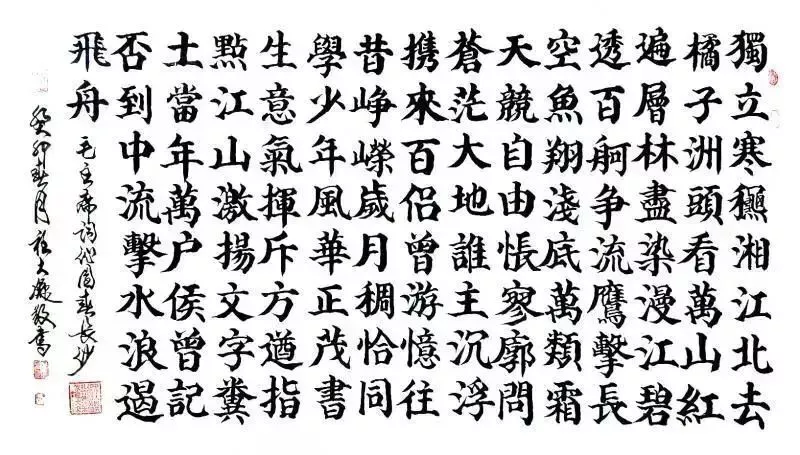 獨立寒龝湘江北去
橘子洲頭看萬山紅
遍層林盡染漫江碧
透百舸争流鷹擊長
空魚翔淺底萬類霜
天競自由悵寥廓問
蒼茫大地誰主沉浮
携來百侣曾游憶往
昔崢嶸歲月稠恰同
學少年風華正茂書
生意氣揮斥方遒指
點江山激揚文字糞
土當年萬户侯曾記
否到中流擊水浪遏
飛舟 毛主席詞沁園春長沙
癸卯春月 敬書